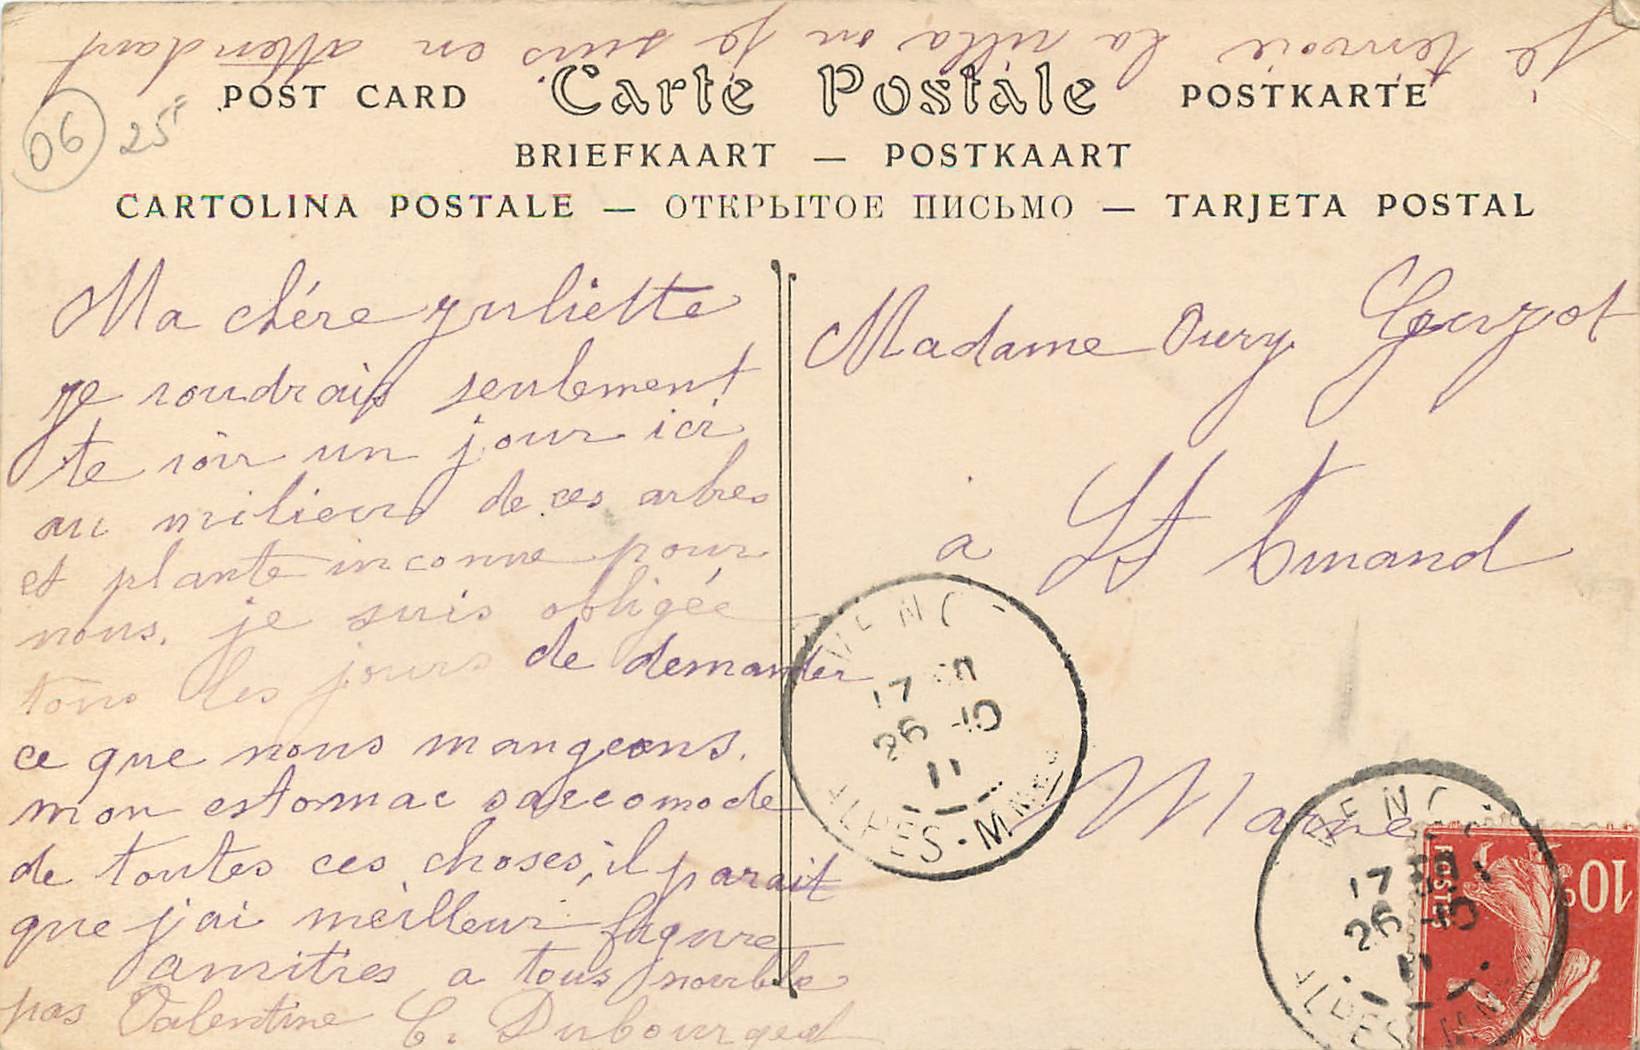 je tenvoie la villa ou je suis en attendant
POST CARD Carte Postale POSTKARTE
BRIEFKAART — POSTKAART
CARTOLINA POSTALE — ОТКРЫТОЕ ПИСЬМО — TARJETA POSTAL
06 25F
Ma chére Juliette
je voudrais seulement
te voir un jour ici
au milieu de ces arbres
et plante inconnue pour
nous. je suis obligée
tous les jours de demander
ce que nous mangeons.
mon estomac saccomode
de toutes ces choses, il parait
que j'ai meilleur figure
amitiés a tous noublie
pas Valentine C.
Madame Oury
à St Amand
Marne
VENCE
17
26 -10
11
ALPES-MMES
VENCE
17
26 -10
11
ALPES-MMES
10c
POSTES